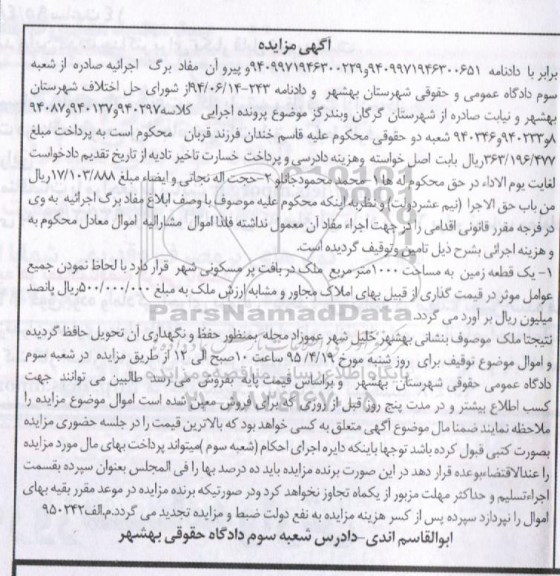 آگهی مزایده
برابر با دادنامه ۹۴۰۹۹۷۱۹۴۶۳۰۰۶۵۱و۹۴۰۹۹۷۱۹۴۶۳۰۰۲۲۹و پیرو آن مفاد برگ اجرائیه صادره از شعبه
سوم دادگاه عمومی و حقوقی شهرستان بهشهر و دادنامه ۲۴۳-۹۴/۰۶/۱۴از شورای حل اختلاف شهرستان
بهشهر و نیابت صادره از شهرستان گرگان وبندرگز موضوع پرونده اجرایی کلاسه۹۴۰۲۹۷و۹۴۰۱۳۷و۹۴۰۸۷
۸و۹۴۰۲۳۳و۹۴۰۳۴۶ شعبه دو حقوقی محکوم علیه قاسم خندان فرزند قربان محکوم است به پرداخت مبلغ
۳۶۳/۱۹۶/۴۷۷ریال بابت اصل خواسته وهزینه دادرسی و پرداخت خسارت تاخیر تادیه از تاریخ تقدیم دادخواست
لغایت یوم الاداء در حق محکوم له ها۱-احمد محمودجانلو۲-حجت اله نجاتی و ایضاء مبلغ ۱۷/۱۰۳/۸۸۸ریال
من باب حق الاجرا (نیم عشردولت)و نظربه اینکه محکوم علیه موصوف با وصف ابلاغ مفاد برگ اجرائیه به وی
در فرجه مقرر قانونی اقدامی را در جهت اجراء مفاد آن معمول نداشته فلذا اموال مشارالیه اموال معادل محکوم به
و هزینه اجرائی بشرح ذیل تامین وتوقیف گردیده است.
۱- یک قطعه زمین به مساحت ۱۰۰۰متر مربع ملک در بافت پر مسکونی شهر قرار دارد با لحاظ نمودن جمیع
عوامل موثر در قیمت گذاری از قبیل بهای املاک مجاور و مشابه ارزش ملک به مبلغ ۵۰۰/۰۰۰/۰۰۰ریال پانصد
میلیون ریال بر آورد می گردد.
نتیجتا ملک موصوف بنشانی بهشهر خلیل شهر عموزاد محله بمنظور حفظ و نگهداری آن تحویل حافظ گردیده
و اموال موضوع توقیف برای روز شنبه مورخ ۹۵/۴/۱۹ ساعت ۱۰صبح الی ۱۲ از طریق مزایده در شعبه سوم
دادگاه عمومی حقوقی شهرستان بهشهر و براساس قیمت پایه بفروش می رسد طالبین می توانند جهت
کسب اطلاع بیشتر و در مدت پنج روز قبل از روزی که برای فروش معین شده است اموال موضوع مزایده را
ملاحظه نمایند ضمنا مال موضوع آگهی متعلق به کسی خواهد بود که بالاترین قیمت را در جلسه حضوری مزایده
بصورت کتبی قبول کرده باشد توجها باینکه دایره اجرای احکام (شعبه سوم )میتواند پرداخت بهای مال مورد مزایده
را عندالاقتضاءبوعده قرار دهد در این صورت برنده مزایده باید ده درصد بها را فی المجلس بعنوان سپرده بقسمت
اجراءتسلیم و حداکثر مهلت مزبور از یکماه تجاوز نخواهد کرد ودر صورتیکه برنده مزایده در موعد مقرر بقیه بهای
اموال را نپردازد سپرده پس از کسر هزینه مزایده به نفع دولت ضبط و مزایده تجدید می گردد.م.الف۹۵۰۲۴۲
ابوالقاسم اندی-دادرس شعبه سوم دادگاه حقوقی بهشهر
ParsNamadData